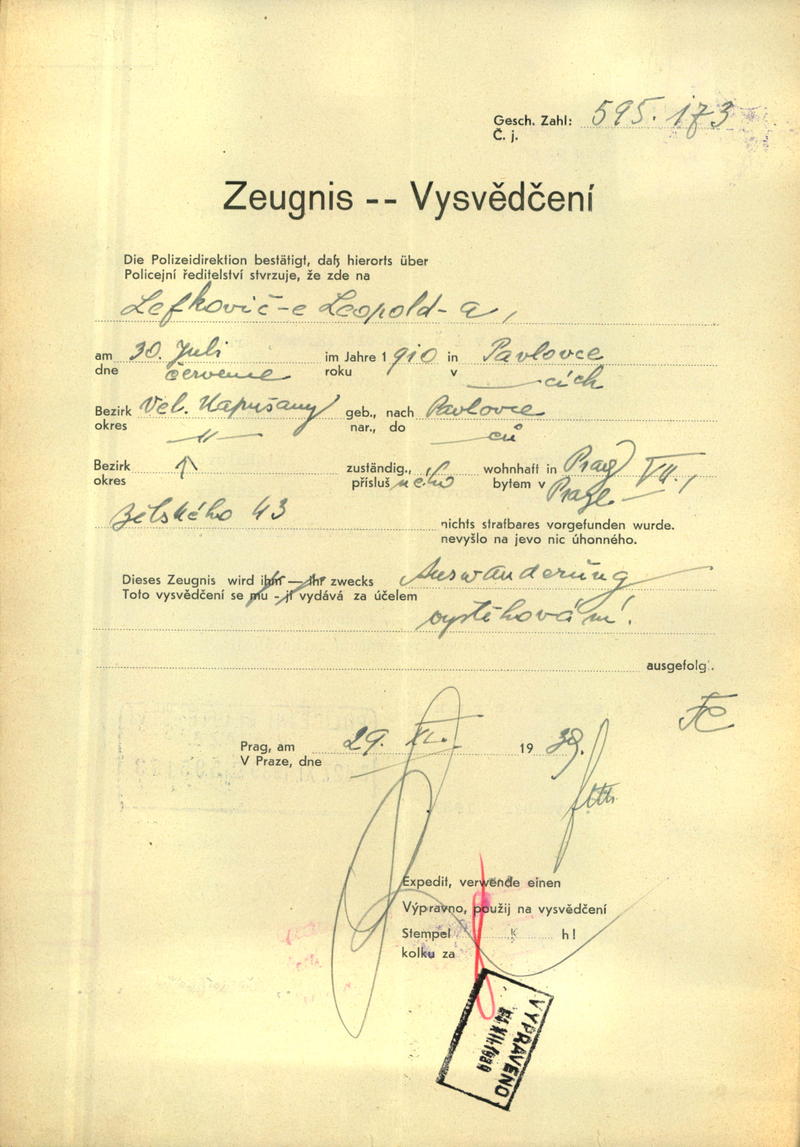 Gesch. Zahl: 595.173
Č. j.
Zeugnis -- Vysvědčení
Die Polizeidirektion bestätigt, daß hierorts über
Policejní ředitelství stvrzuje, že zde na
Lefkovič-e Leopold-a,
am 30. Juli im Jahre 1910 in Pavlovce
dne července roku v -cích
Bezirk Vel. Kapušany geb., nach Pavlovce
okres -"- nar., do ců
Bezirk zuständig., wohnhaft in Prag VII.,
okres přísluš ného bytem v Praze
43 nichts strafbares vorgefunden wurde.
nevyšlo na jevo nic úhonného.
Dieses Zeugnis wird ihm — ihr zwecks Auswanderung
Toto vysvědčení se mu - jí vydává za účelem
vystěhování.
ausgefolg.
Prag, am 29. XI. 1939.
V Praze, dne
Expedit, verwende einen
Výpravno, použij na vysvědčení
Stempel K h l
kolku za
VYPRAVENO
XII. 1939